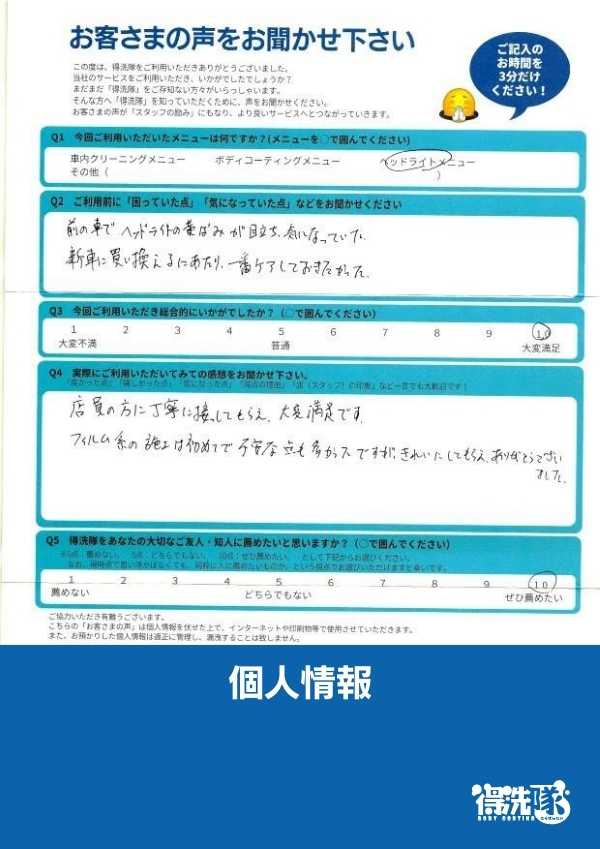 お客さまの声をお聞かせ下さい
ご記入の
お時間を
3分だけ
ください！
この度は、得洗隊をご利用いただきありがとうございました。
当社のサービスをご利用いただき、いかがでしたでしょうか？
まだまだ「得洗隊」をご存知ない方々がいらっしゃいます。
そんな方へ「得洗隊」を知っていただくために、声をお聞かせください。
お客さまの声が「スタッフの励み」にもなり、より良いサービスへとつながっていきます。
Q1 今回ご利用いただいたメニューは何ですか？(メニューを○で囲んでください)
車内クリーニングメニュー ボディコーティングメニュー ヘッドライトメニュー
その他（ ）
Q2 ご利用前に「困っていた点」「気になっていた点」などをお聞かせください
前の車でヘッドライトの黄ばみが目立ち、気になっていた。
新車に買い換えるにあたり、一番ケアしておきたかった。
Q3 今回ご利用いただき総合的にいかがでしたか？（○で囲んでください）
1 2 3 4 5 6 7 8 9 10
大変不満 普通 大変満足
Q4 実際にご利用いただいてみての感想をお聞かせ下さい。
「良かった点」「嬉しかった点」「気になった点」「満点の理由」「店（スタッフ）の印象」など一言でも大歓迎です！
店員の方に丁寧に接してもらえ、大変満足です。
フィルム系の施工は初めてで不安な点も多かったですが、きれいにしてもらえ、ありがとうござい
ました。
Q5 得洗隊をあなたの大切なご友人・知人に薦めたいと思いますか？（○で囲んでください）
※0点：薦めない、 5点：どちらでもない、 10点：ぜひ薦めたい、 として下記からお選びください。
1 2 3 4 5 6 7 8 9 10
薦めない どちらでもない ぜひ薦めたい
ご協力いただき有難うございます。
こちらの「お客さまの声」は個人情報を伏せた上で、インターネットや印刷物等で使用させていただきます。
また、お預かりした個人情報は適正に管理し、漏洩することは致しません。
個人情報
得洗隊
BODY COATING